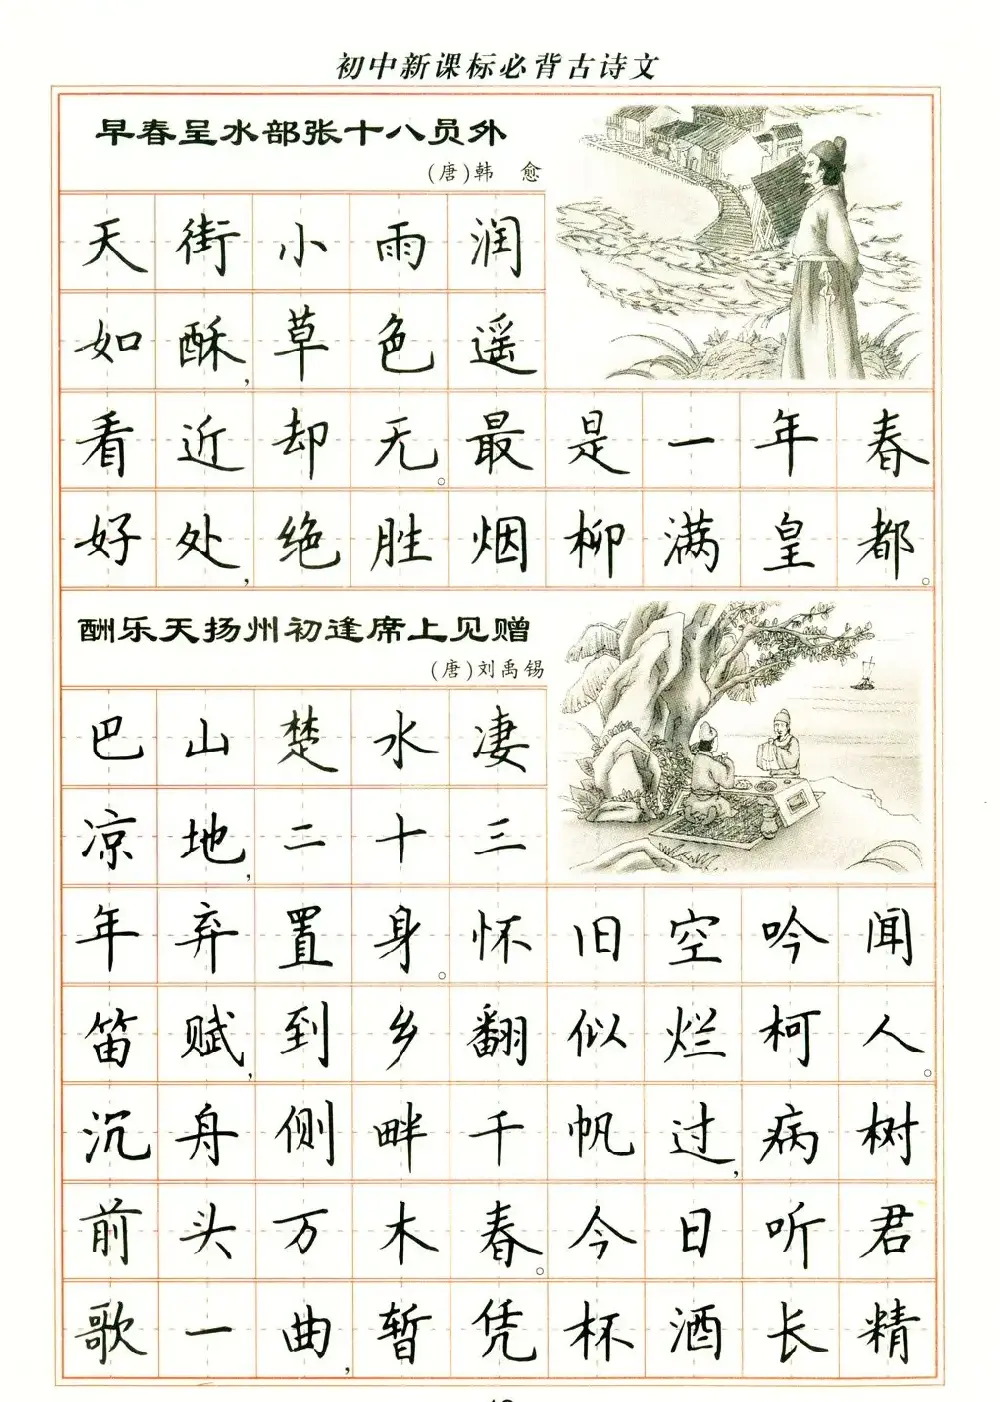 初中新课标必背古诗文
早春呈水部张十八员外
(唐)韩 愈
天街小雨润
如酥,草色遥
看近却无。最是一年春
好处,绝胜烟柳满皇都。
酬乐天扬州初逢席上见赠
(唐)刘禹锡
巴山楚水凄
凉地,二十三
年弃置身。怀旧空吟闻
笛赋,到乡翻似烂柯人。
沉舟侧畔千帆过,病树
前头万木春。今日听君
歌一曲,暂凭杯酒长精